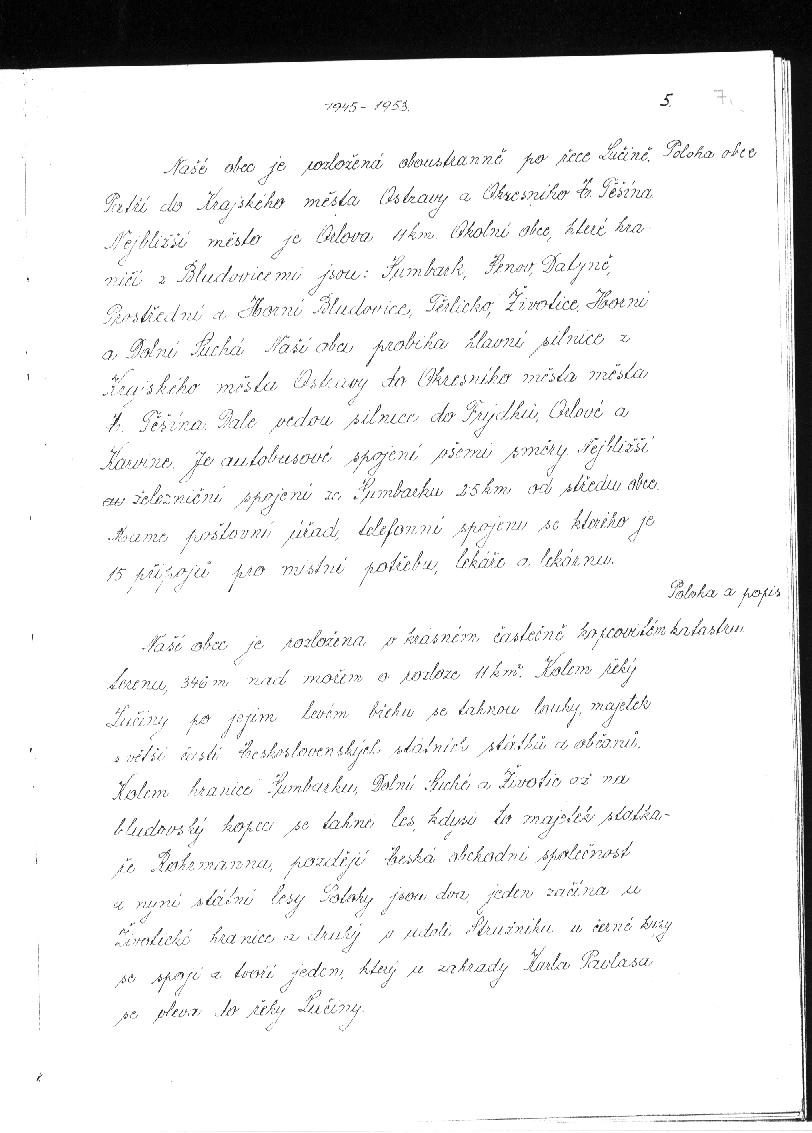 1945 - 1953.
5. 7.
Naše obec je rozložená oboustranně po řece Lučině. Poloha obce
Patří do Krajského města Ostravy a Okresního Č. Těšína
Nejbližší město je Orlova 11 km. Okolní obce, které hra-
ničí z Bludovicemi jsou: Šumbark, Šenov, Datyně,
Prostřední a Horní Bludovice, Těrlicko, Životice, Horní
a Dolní Suchá Naší obci probíha hlavní silnice z
Krajského města Ostravy do Okresního města města
Č. Těšína. Dale vedou silnice do Frýdku, Orlové a
Karvine. Je autobusové spojení všemi směry. Nejbližší
železniční spojení ze Šumbarku 2.5 km od středu obce.
Mame poštovní úřad, telefonní spojeni se kterého je
15 přípojů pro mistní potřebu, lekáře a lekárnu.
Poloha a popis
Naší obec je rozložena v krásném častečně kopcovitém katastru
terenu, 346 m nad mořem o rozloze 11 km². Kolem řeký
Lučiny po jejim levém břehu se tahnou louky, majetek
z větší časti Československých státních státků a občanů.
Kolem hranicí Šumbarku, Dolní Suché a Životic až na
bludovský kopec se tahne les, kdysi to majetek statka-
ře Rohrmanna, pozdějí Česká obchodní společnost
a nyní státní lesy Potoky jsou dva jeden začína u
Životické hranice a druhý v udolí Stružníku u černé
se spojí a tvoří jeden, který u zahrady Karla Pavlasa
se vleva do řeky Lučiny.